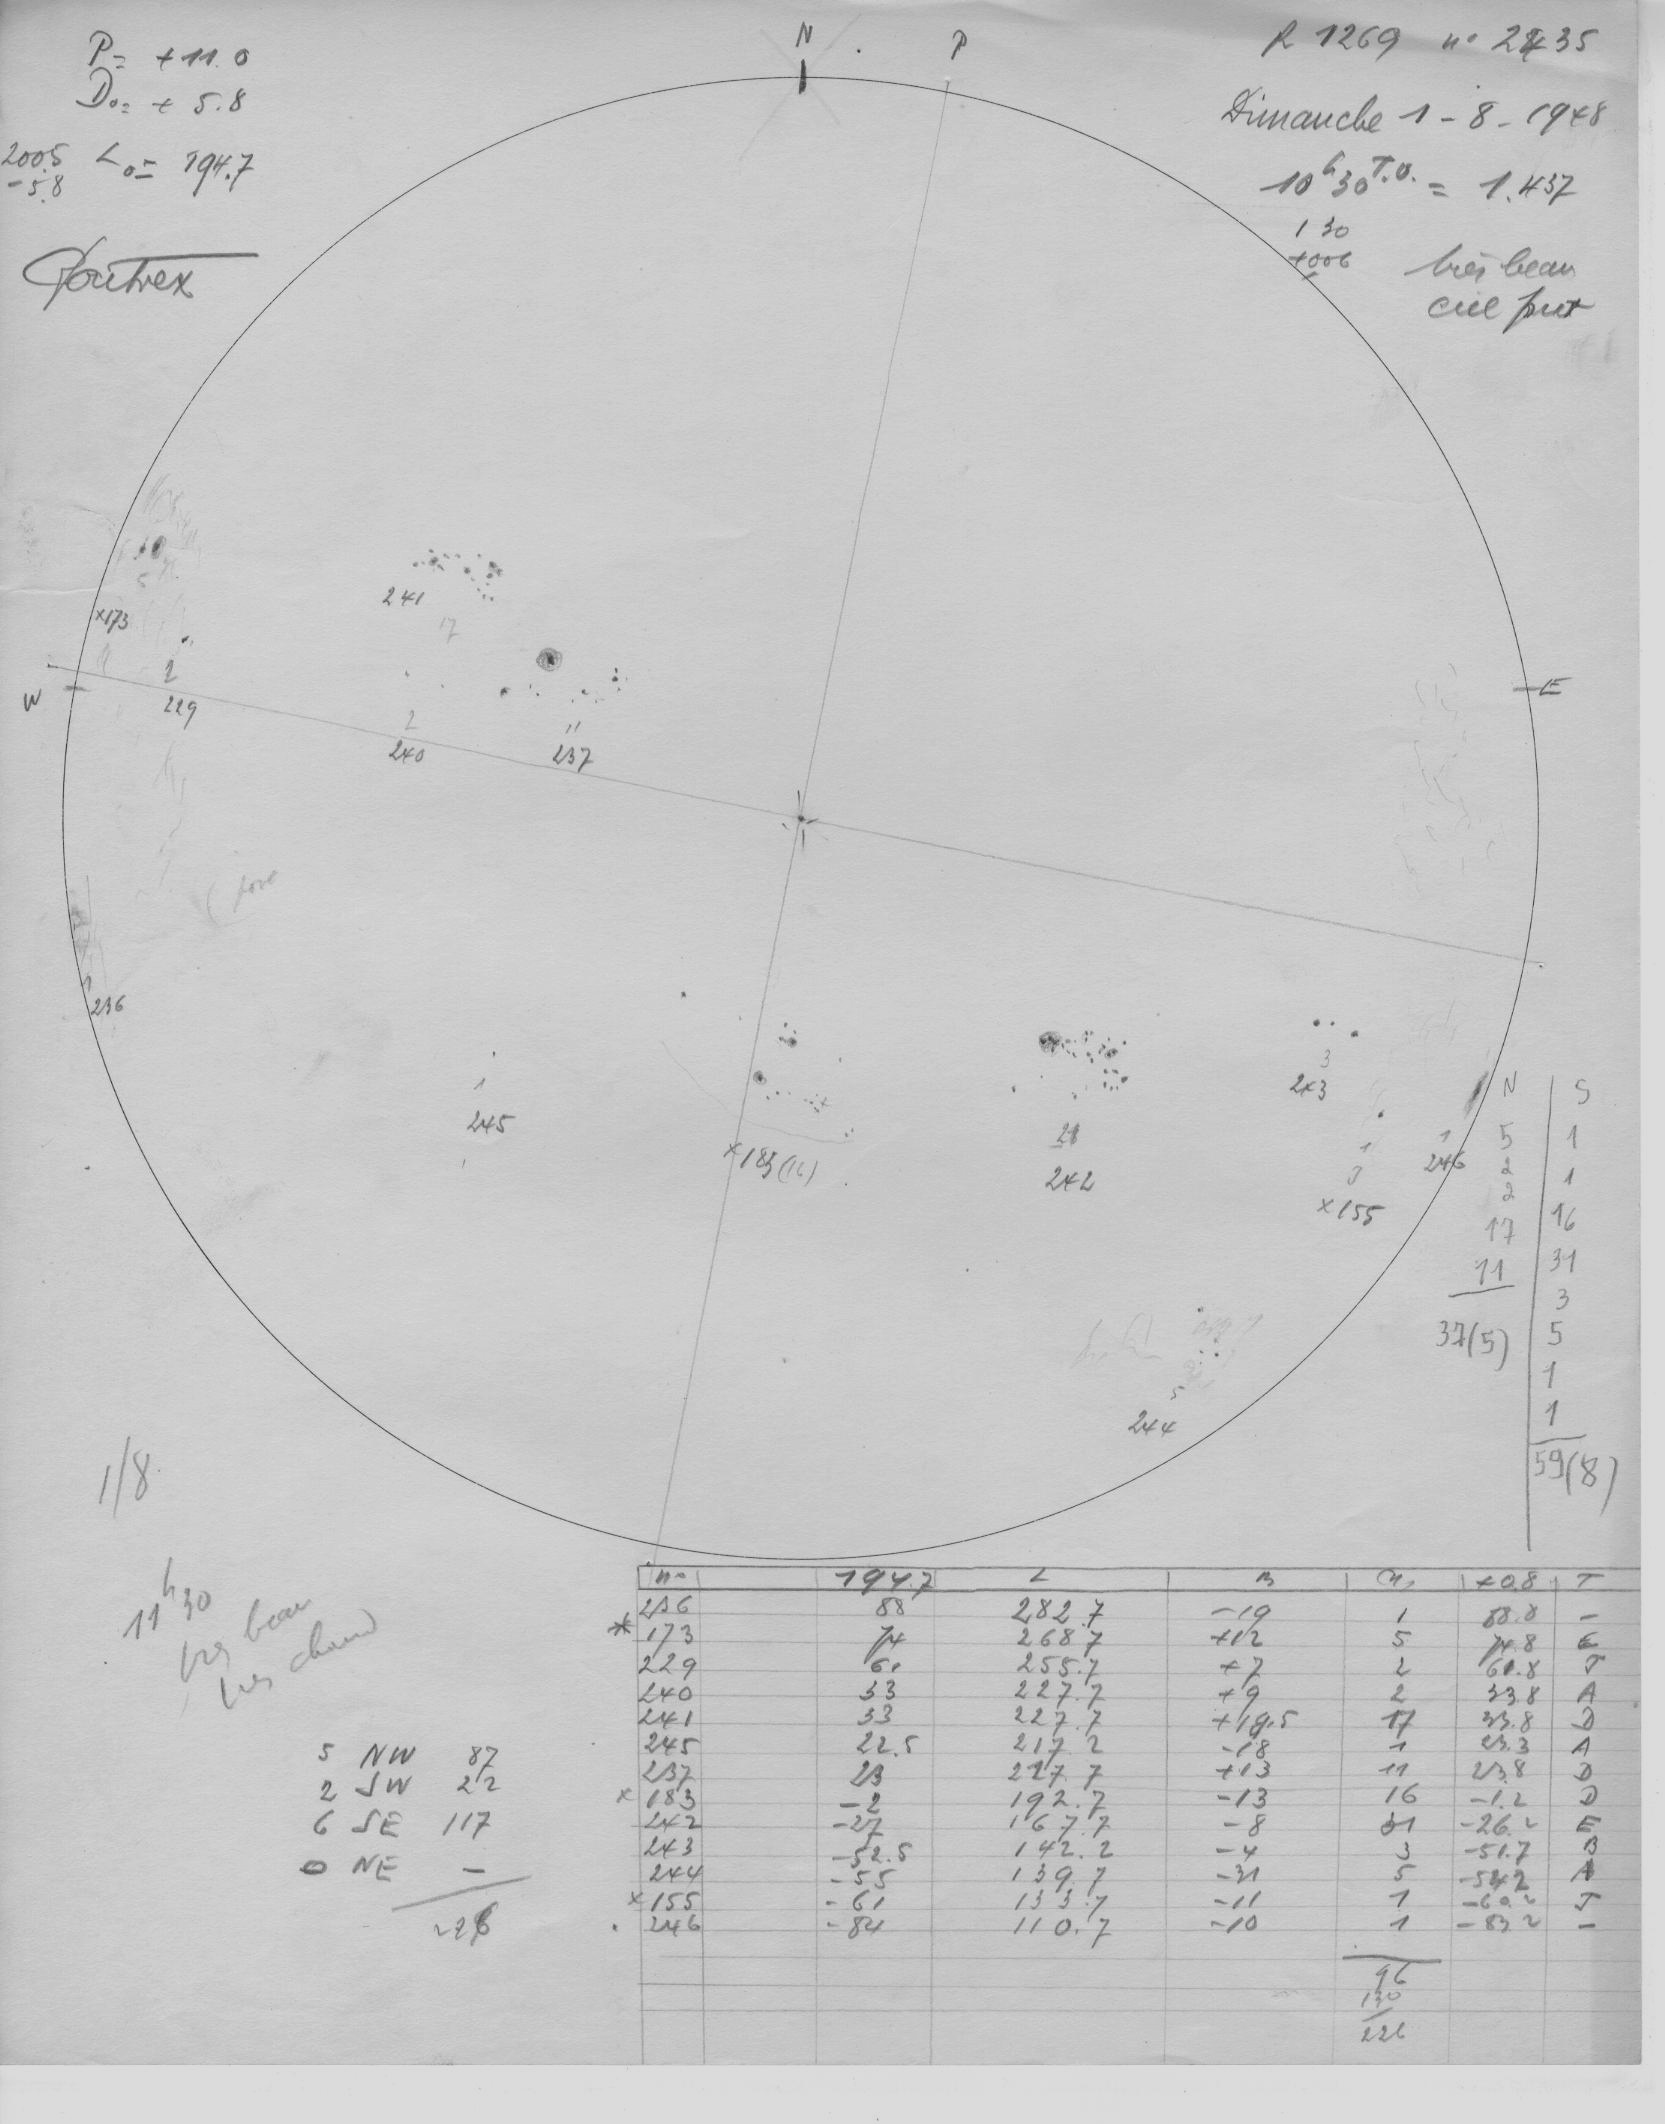 P= +11.0
D₀= + 5.8
2005
-5.8
L₀= 194.7
N
P
R 1269 n° 2435
Dimanche 1-8-1948
10h30 T.U. = 1.437
1 30
+006
très beau
ciel pur
5
×173
241
17
2
229
2
240
11
237
W
E
236
1
245
×183(16)
31
242
3
243
1
×155
1
246
5
244
N | S
5 | 1
2 | 1
2 | 16
17 | 31
11 | 3
37(5) | 5
1
1
59(8)
1/8
11h30
très beau
très chaud
5 NW 87
2 SW 22
6 SE 117
0 NE -
226
n° 194.7 L B +0.8 T
236 88 282.7 -19 1 88.8 -
* 173 74 268.7 +12 5 74.8 E
229 61 255.7 +7 2 61.8 J
240 33 227.7 +9 2 33.8 A
241 33 227.7 +19.5 17 33.8 D
245 22.5 217.2 -18 1 23.3 A
237 23 217.7 +13 11 23.8 D
× 183 -2 192.7 -13 16 -1.2 D
242 -27 167.7 -8 31 -26.2 E
243 -52.5 142.2 -4 3 -51.7 B
244 -55 139.7 -31 5 -54.2 A
× 155 -61 133.7 -11 1 -60.2 J
246 -84 110.7 -10 1 -83.2 -
96
130
226